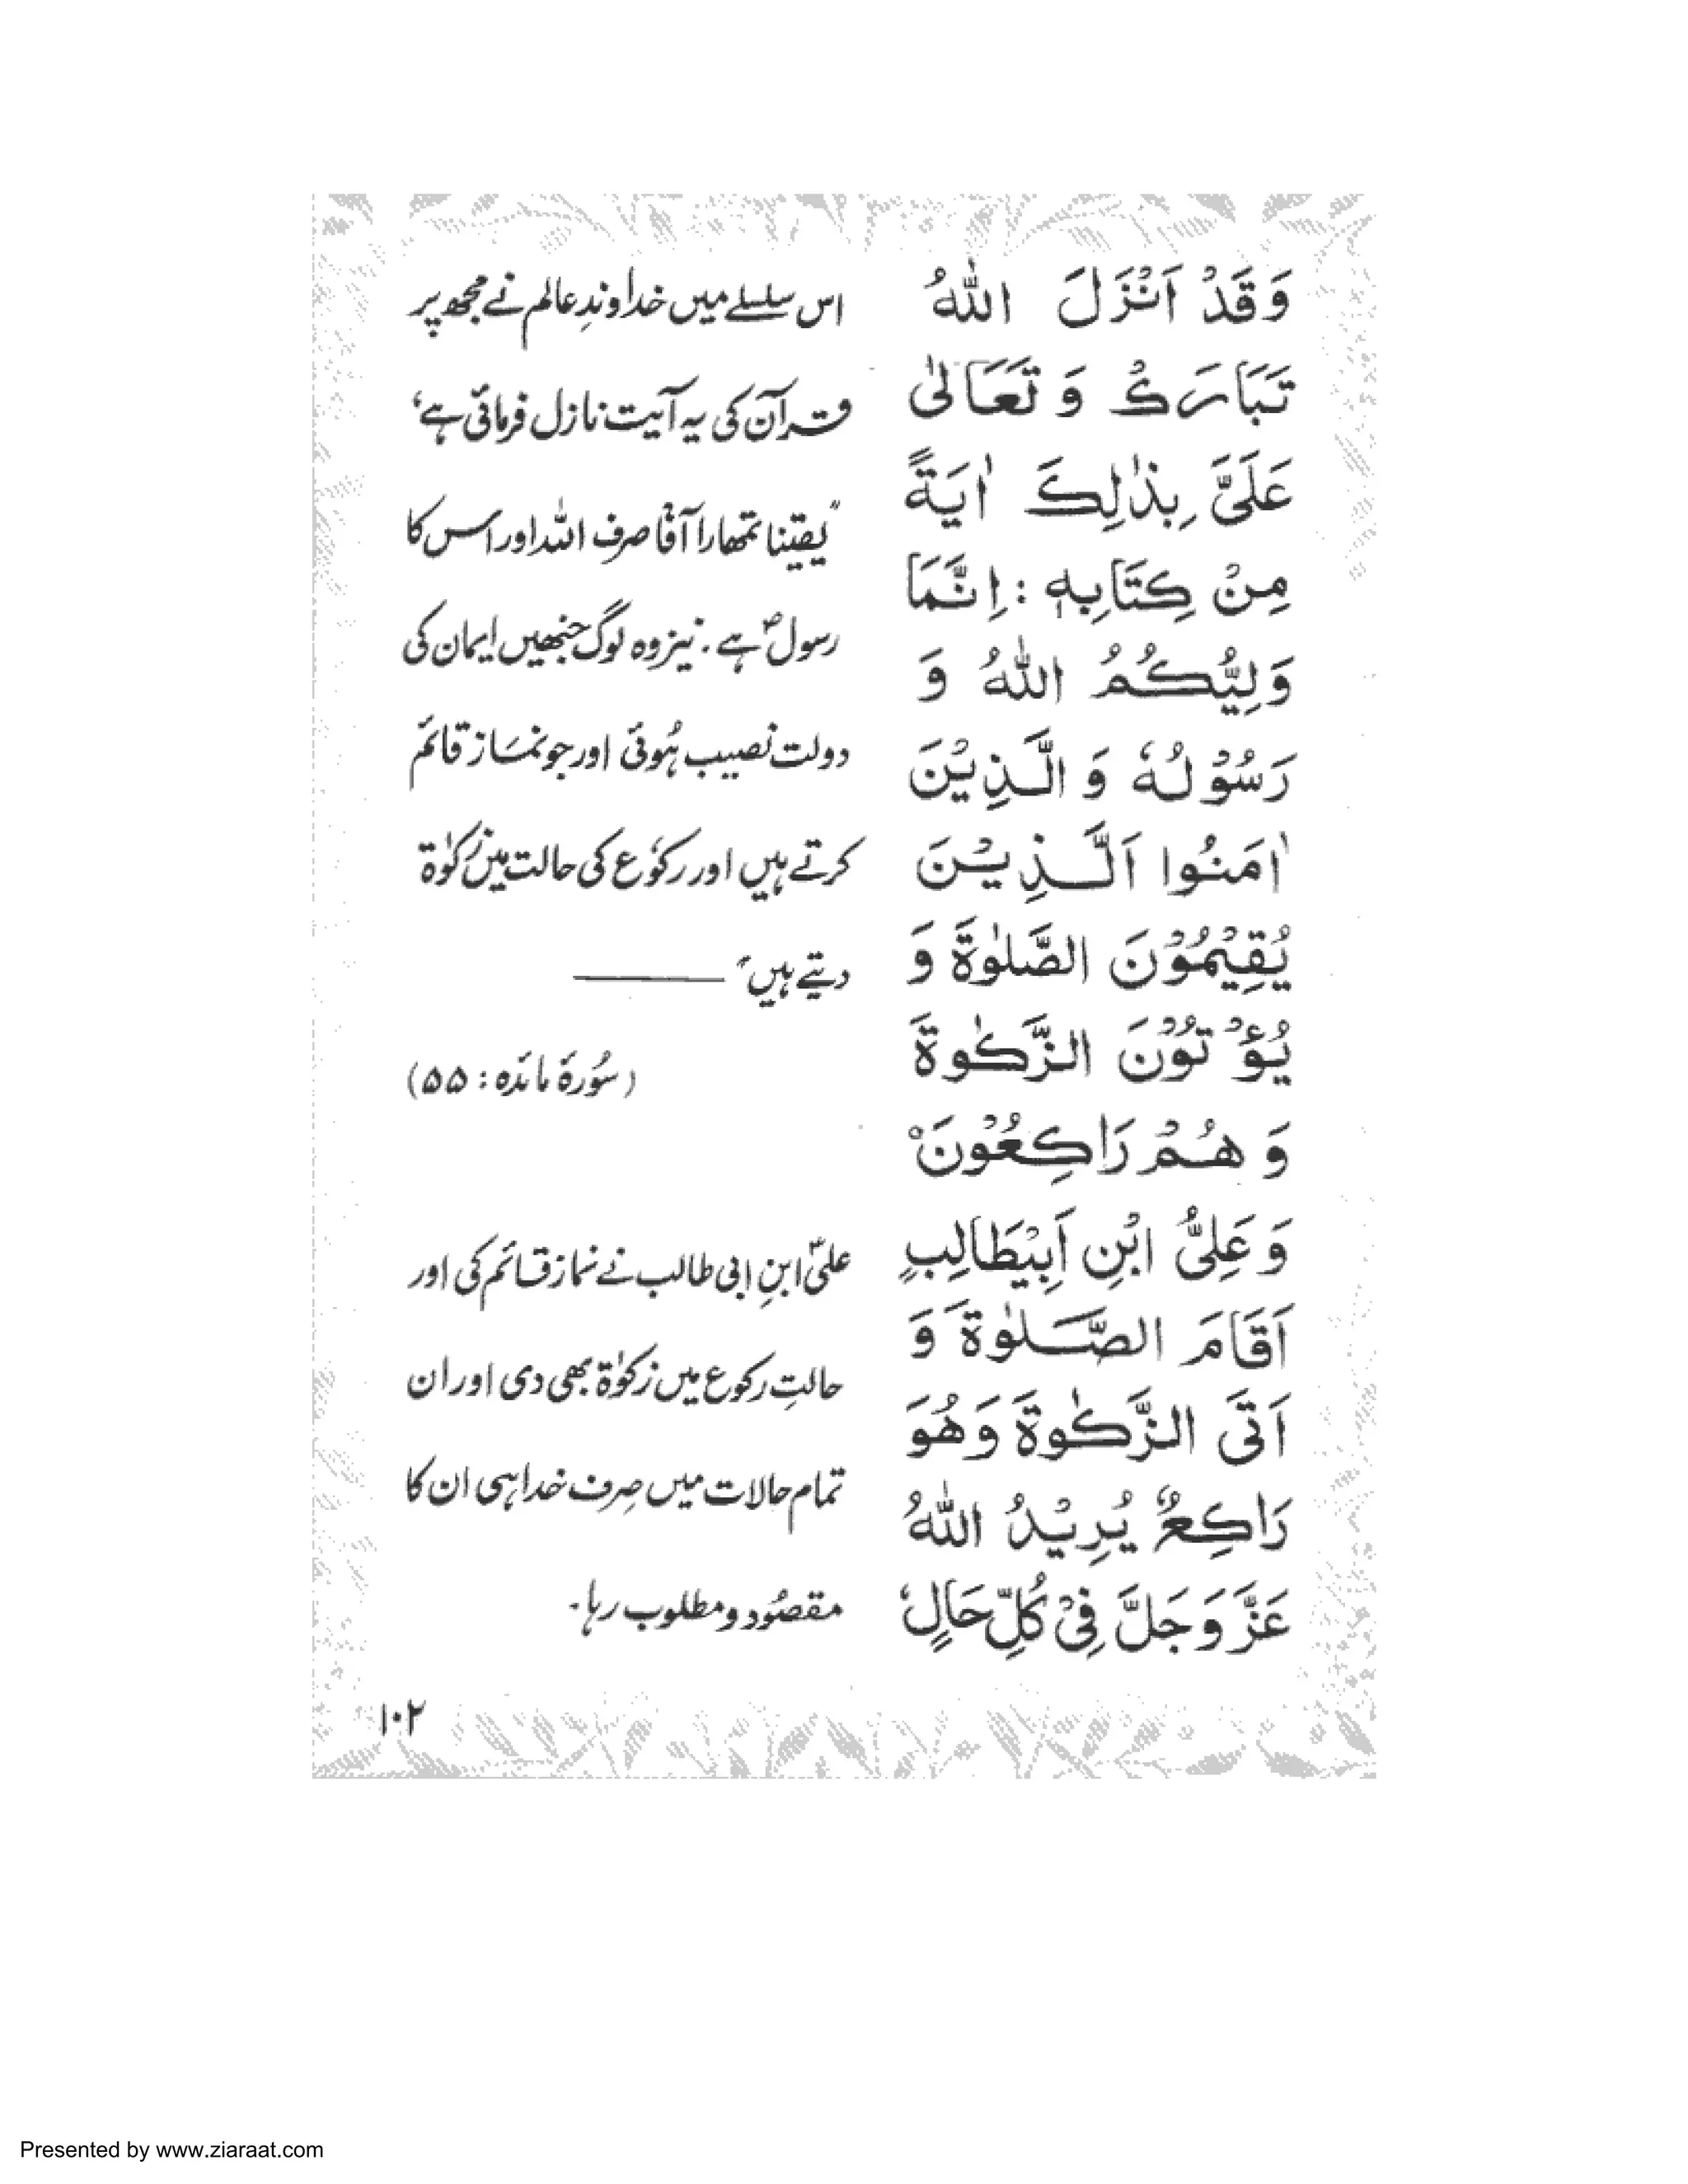 وَقَدْ اَنْزَلَ اللّٰهُ
تَبَارَكَ وَ تَعَالٰی
عَلَیَّ بِذٰلِكَ اٰیَةً
مِنْ كِتَابِهٖ : اِنَّمَا
وَلِیُّكُمُ اللّٰهُ وَ
رَسُوْلُهٗ وَ الَّذِیْنَ
اٰمَنُوا الَّذِیْنَ
یُقِیْمُوْنَ الصَّلٰوةَ وَ
یُؤْتُوْنَ الزَّكٰوةَ
وَ هُمْ رَاكِعُوْنَ
وَ عَلِیُّ ابْنِ اَبِیْطَالِبٍ
اَقَامَ الصَّلٰوةَ وَ
اَتَی الزَّكٰوةَ وَهُوَ
رَاكِعٌ یُرِیْدُ اللّٰهُ
عَزَّ وَجَلَّ فِیْ كُلِّ حَالٍ
اس سلسلے میں خداوندِ عالم نے مجھ پر
قرآن کی یہ آیت نازل فرمائی ہے،
"یقیناً تمھارا آقا صرف اللہ اور اس کا
رسولؐ ہے۔ نیز وہ لوگ جنھیں ایمان کی
دولت نصیب ہُوئی اور جو نماز قائم
کرتے ہیں اور رکوع کی حالت میں زکوٰۃ
دیتے ہیں"
(سُورۂ مائدہ : ۵۵)
علیؑ ابنِ ابی طالب نے نماز قائم کی اور
حالتِ رکوع میں زکوٰۃ بھی دی اور ان
تمام حالات میں صِرف خدا ہی ان کا
مقصُود و مطلوب رہا۔
۱۰۲
Presented by www.ziaraat.com